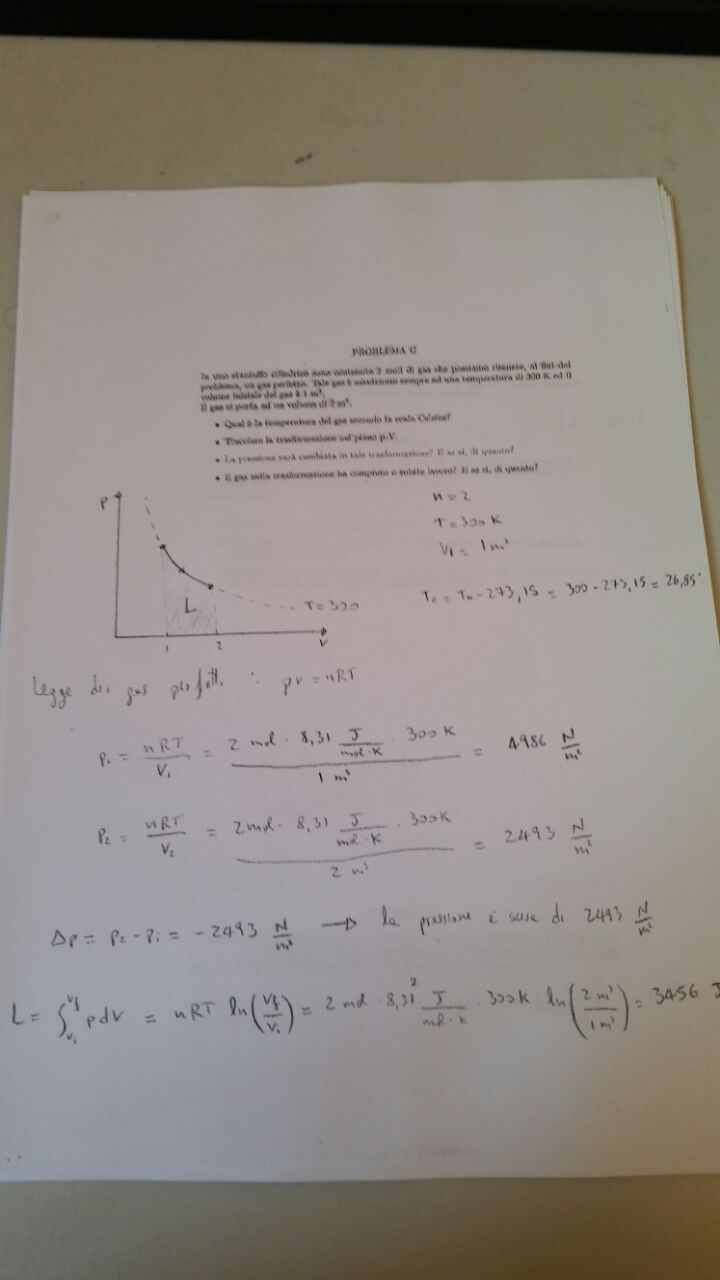 PROBLEMA C
In uno stantuffo cilindrico sono contenute 2 moli di gas che possiamo ritenere, ai fini del
problema, un gas perfetto. Tale gas è mantenuto sempre ad una temperatura di 300 K ed il
volume iniziale del gas è 1 m³.
Il gas si porta ad un volume di 2 m³.
• Qual è la temperatura del gas secondo la scala Celsius?
• Tracciare la trasformazione nel piano p-V.
• La pressione sarà cambiata in tale trasformazione? E se si, di quanto?
• Il gas nella trasformazione ha compiuto o subito lavoro? E se si, di quanto?
n = 2
T = 300 K
V₁ = 1 m³
Tc = Tk - 273,15 = 300 - 273,15 = 26,85°
P
L
T = 300
1 2 V
Legge dei gas perfetti : pV = nRT
Pi = nRT / V₁ = 2 mol · 8,31 J / mol·K · 300 K / 1 m³ = 4986 N / m²
P₂ = nRT / V₂ = 2 mol · 8,31 J / mol·K · 300 K / 2 m³ = 2493 N / m²
Δp = P₂ - Pi = -2493 N / m² → la pressione è scesa di 2493 N / m²
L = ∫ Vi Vf p dV = nRT ln(Vf / Vi) = 2 mol · 8,31 2 J / mol·K · 300K ln(2 m³ / 1 m³) = 3456 J